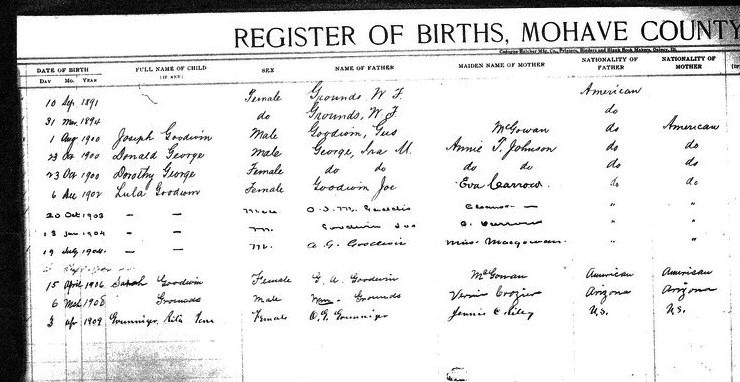 REGISTER OF BIRTHS, MOHAVE COUNTY
DATE OF BIRTH FULL NAME OF CHILD SEX NAME OF FATHER MAIDEN NAME OF MOTHER NATIONALITY OF FATHER NATIONALITY OF MOTHER
DAY Mo. YEAR (IF ANY)
10 Sep 1891 Female Grounds, W. F. American
31 Mar 1894 do Grounds, W. F. do
1 Aug 1900 Joseph Goodwin Male Goodwin, Gus McGowan do American
23 Oct 1900 Donald George Male George, Ira M. Annie T. Johnson do do
23 Oct 1900 Dorothy George Female do do do do do do
6 Dec 1902 Lula Goodwin Female Goodwin Joe Eva Carrow do do
20 Oct 1903 – – Male " "
13 Jan 1904 – – M. Goodwin Joe " "
19 July 1904 – – M. A. G. Goodwin Miss Macgowan " "
15 April 1906 Sarah Goodwin Female G. A. Goodwin McGowan American American
6 Mch 1908 Grounds Male Wm. Grounds Crozier Arizona Arizona
3 Apr 1909 Female Jennie C. Riley U.S. U.S.